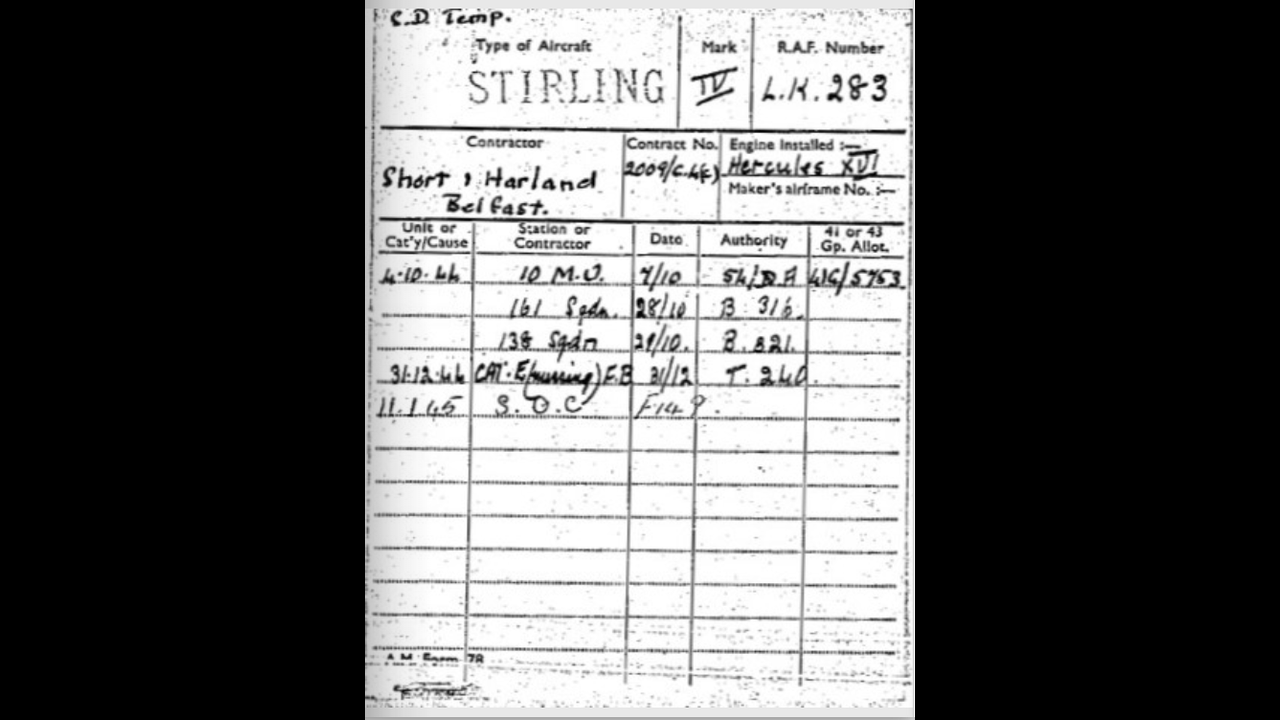 S.D. Temp.
Type of Aircraft Mark R.A.F. Number
STIRLING IV L.K. 283
Contractor Contract No. Engine Installed :—
Short , Harland 2009/C.4(c) Hercules XVI
Belfast. Maker's airframe No. :—
Unit or Cat'y/Cause Station or Contractor Date Authority 41 or 43 Gp. Allot.
4.10.44 10 M.U. 7/10 41G/5753
161 Sqdn. 28/10 B 316.
138 Sqdn 29/10. B. 321.
31.12.44 CAT. E (missing) F.B 31/12 T. 240.
11.1.45 S.O.C F.14
A.M. Form 78